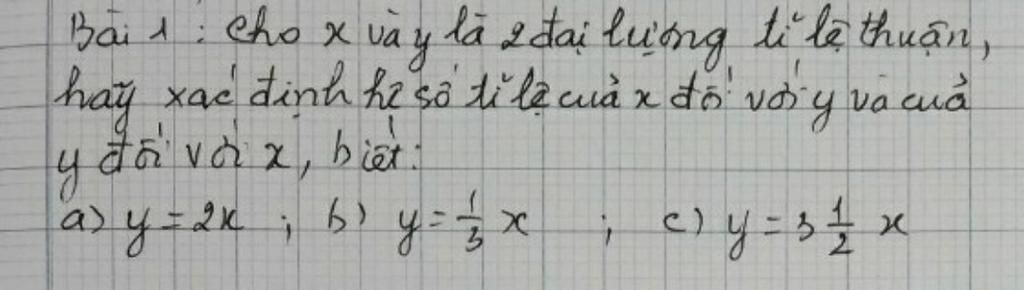 Bài 1 : Cho x và y là 2 đại lượng tỉ lệ thuận,
hãy xác định hệ số tỉ lệ của x đối với y và của
y đối với x, biết:
a) y = 2x ; b) y = 1/3 x ; c) y = 3 1/2 x